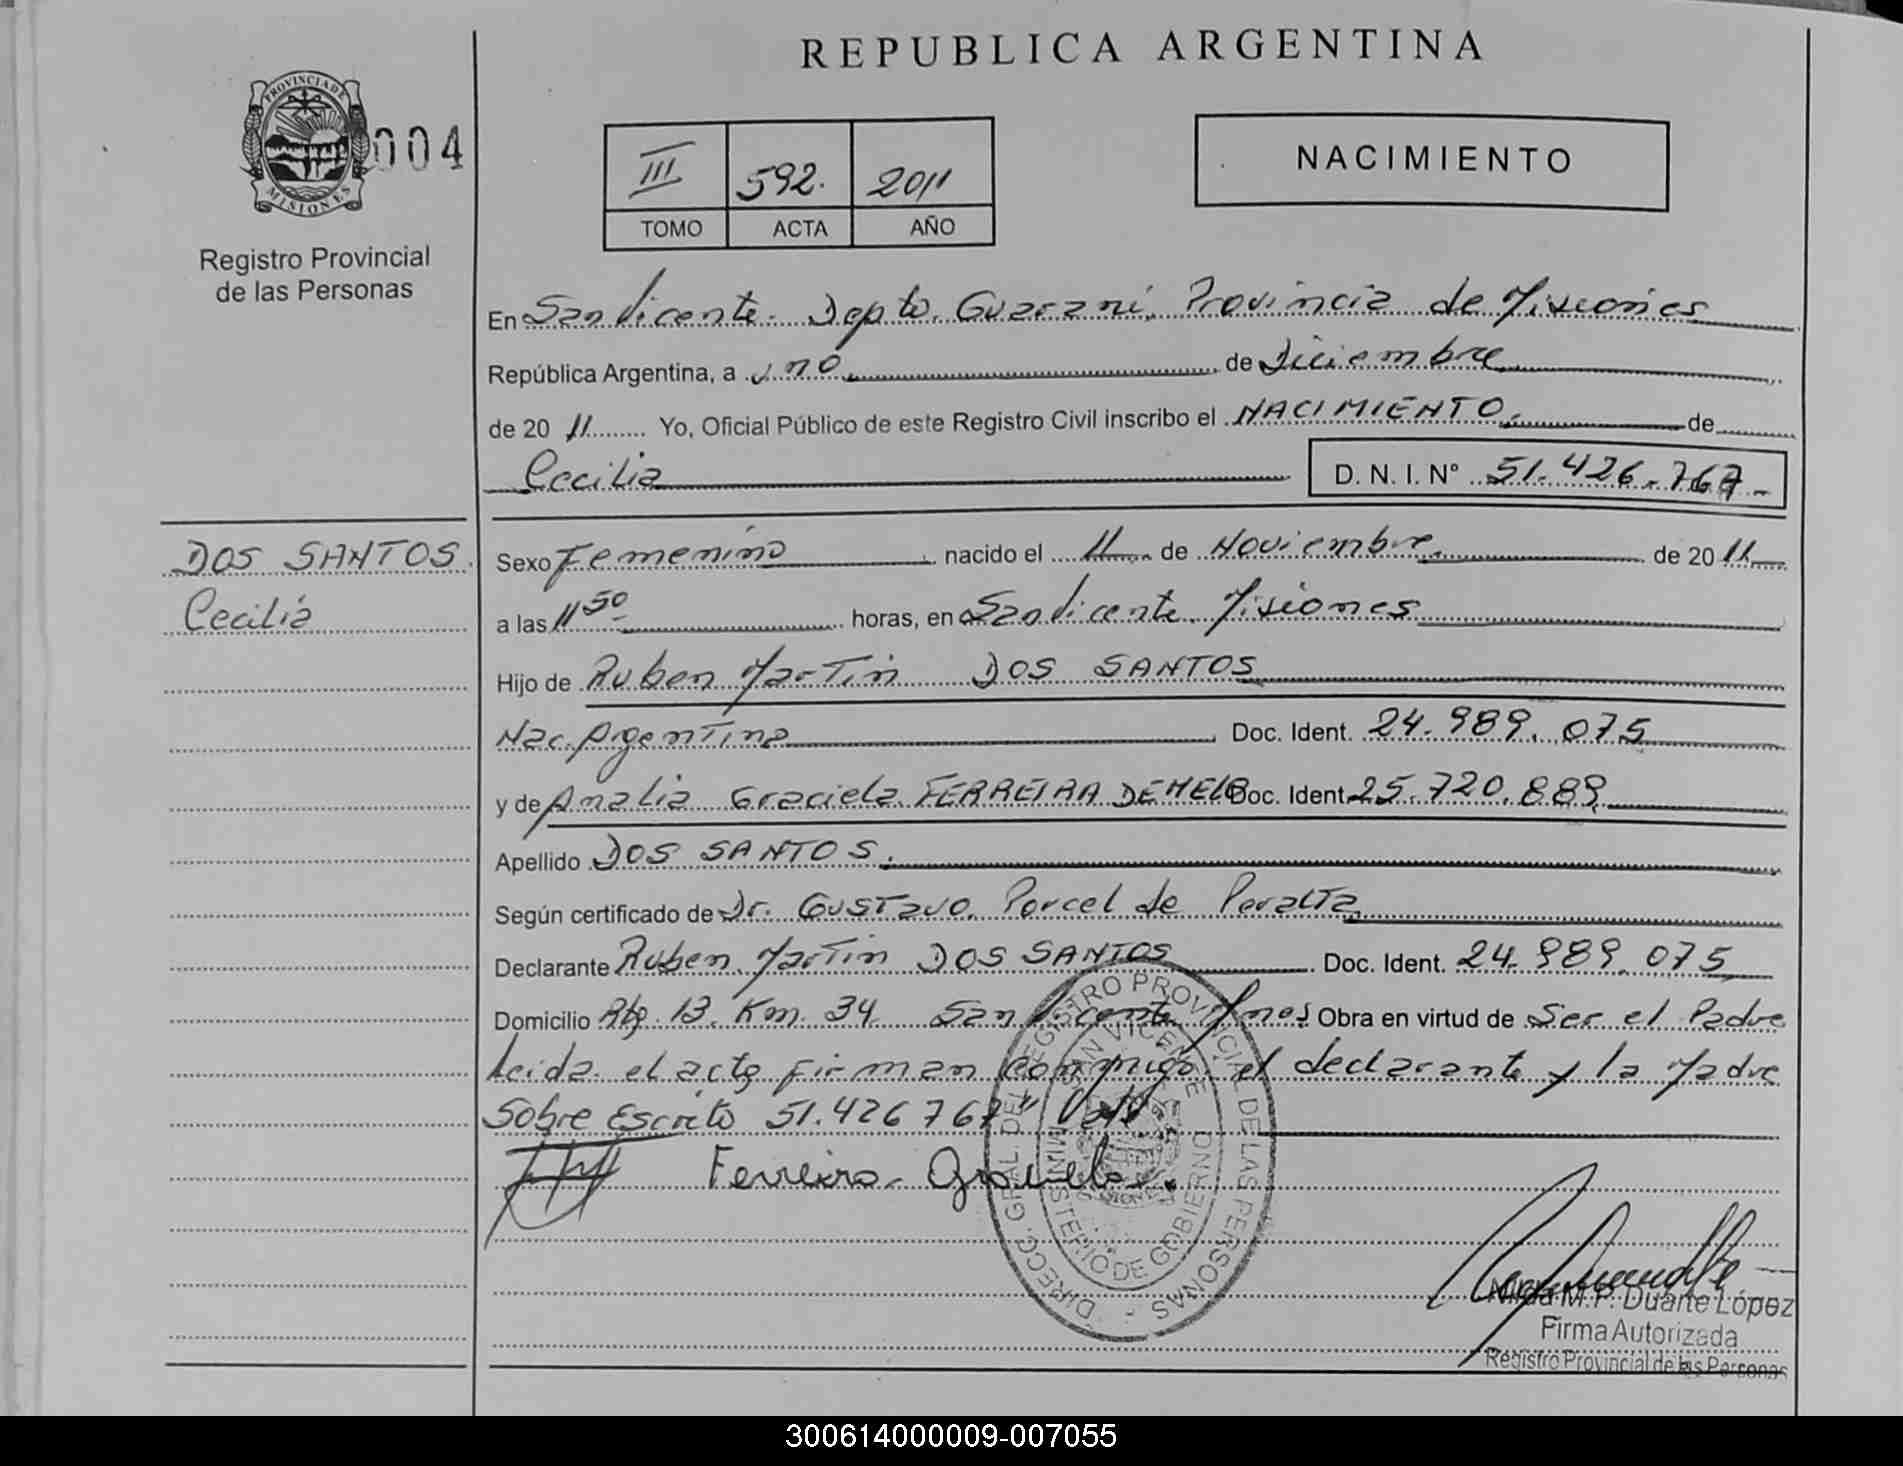 REPUBLICA ARGENTINA
PROVINCIA DE
MISIONES
004
Registro Provincial
de las Personas
III 592. 2011
TOMO ACTA AÑO
NACIMIENTO
En San Vicente. Depto. Guaraní, Provincia de Misiones
República Argentina, a uno de Diciembre
de 2011 Yo, Oficial Público de este Registro Civil inscribo el NACIMIENTO. de
Cecilia D. N. I. N° 51.426.767-
DOS SANTOS.
Cecilia
Sexo Femenino nacido el 11 de Noviembre de 2011
a las 11 50 horas, en San Vicente Misiones
Hijo de Ruben Martin DOS SANTOS
Nac. Argentina Doc. Ident. 24.989.075
y de Analia Graciela FERREIRA DE MELO Doc. Ident. 25.720.889
Apellido DOS SANTOS.
Según certificado de Dr. Gustavo Porcel de Peralta
Declarante Ruben Martin DOS SANTOS Doc. Ident. 24.989.075
Domicilio Rta. 13. Km. 34 San Vicente Mnes Obra en virtud de Ser el Padre
Leida el acta firman conmigo el declarante y la Madre
Sobre Escrito 51.426 767" Vale
Ferreira Graciela.
DIRECC. GRAL. DEL REGISTRO PROVINCIAL DE LAS PERSONAS -
SAN VICENTE
MINISTERIO DE GOBIERNO
MISIONES
Nilda M.P. Duarte López
Firma Autorizada
Registro Provincial de las Personas
300614000009-007055